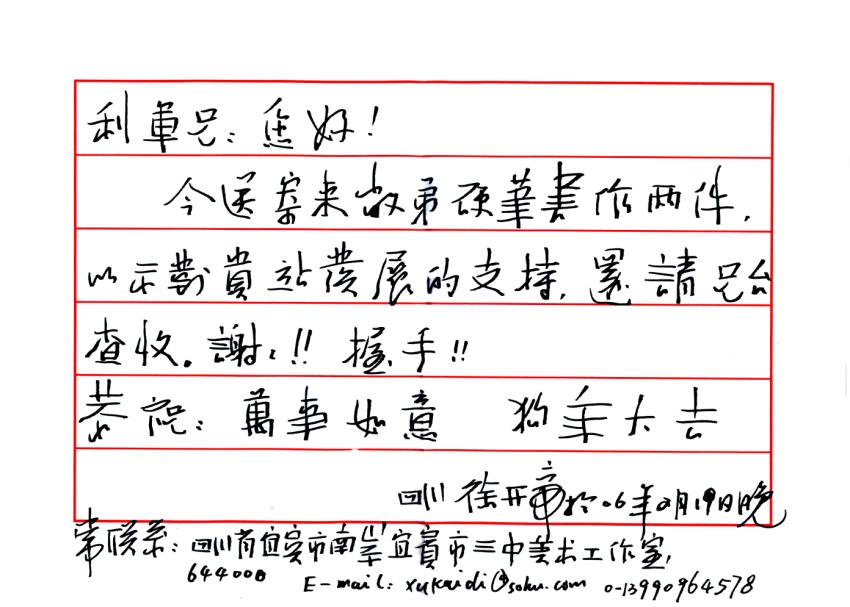 利軍兄：您好！
今送寄來敝弟硬筆書作兩件，
以示對貴站發展的支持，還請兄台
查收。謝：!! 握手!!
恭祝：萬事如意 狗年大吉
四川 徐开帝於06年2月19日晚
常联系：四川省宜宾市南岸宜賓市三中美术工作室，
644000 E-mail: xukaidi@sohu.com 0-13990964578